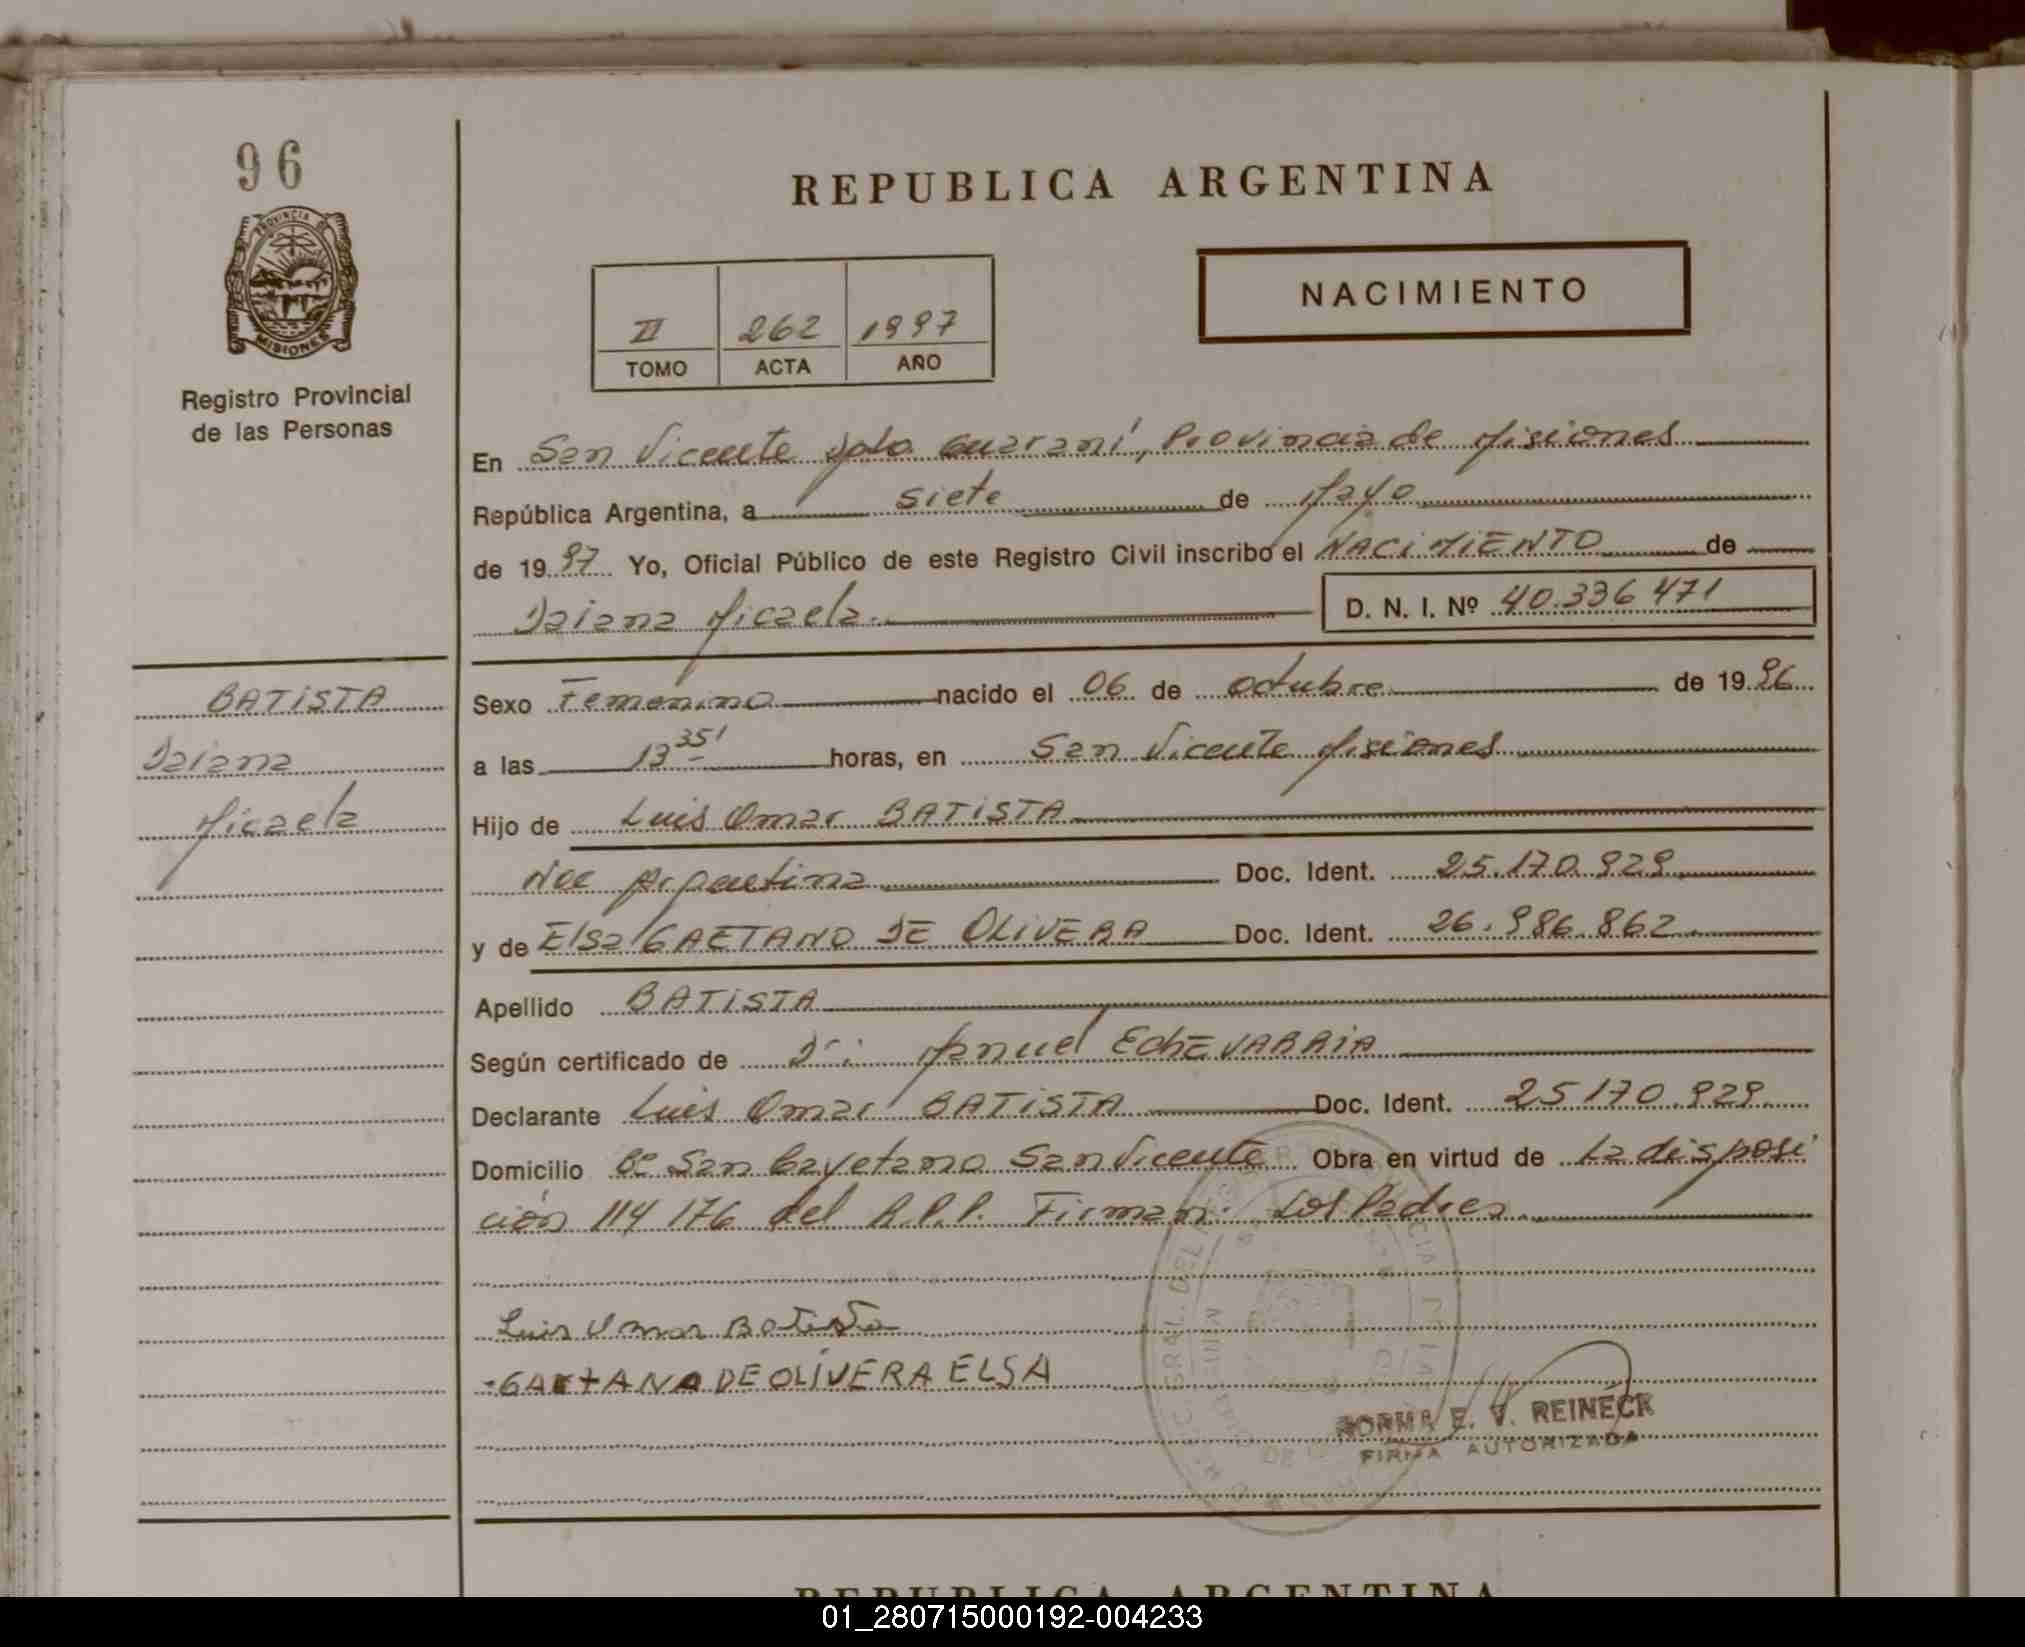 96
PROVINCIA DE
MISIONES
Registro Provincial
de las Personas
REPUBLICA ARGENTINA
NACIMIENTO
II 262 1997
TOMO ACTA AÑO
En San Vicente Dpto Guaraní, Provincia de Misiones
República Argentina, a siete de Mayo
de 1997 Yo, Oficial Público de este Registro Civil inscribo el NACIMIENTO de
Daiana Micaela. D. N. I. Nº 40.336 471
BATISTA
Daiana
Micaela
Sexo Femenino nacido el 06 de octubre de 1996
a las 13 35' horas, en San Vicente Misiones
Hijo de Luis Omar BATISTA
Nac Argentina Doc. Ident. 25.170.929
y de Elsa GAETANO DE OLIVERA Doc. Ident. 26.986.862.
Apellido BATISTA
Según certificado de Dr: Manuel EchEVARRIA
Declarante Luis Omar BATISTA Doc. Ident. 25170.929.
Domicilio Bº San Cayetano San Vicente Obra en virtud de La disposi
ción 114 176 del R.P.P. Firman: Los Padres
Luis Omar Batista
GAETANO DE OLIVERA ELSA
NORMA E. V. REINECK
FIRMA AUTORIZADA
REPUBLICA ARGENTINA
01_280715000192-004233